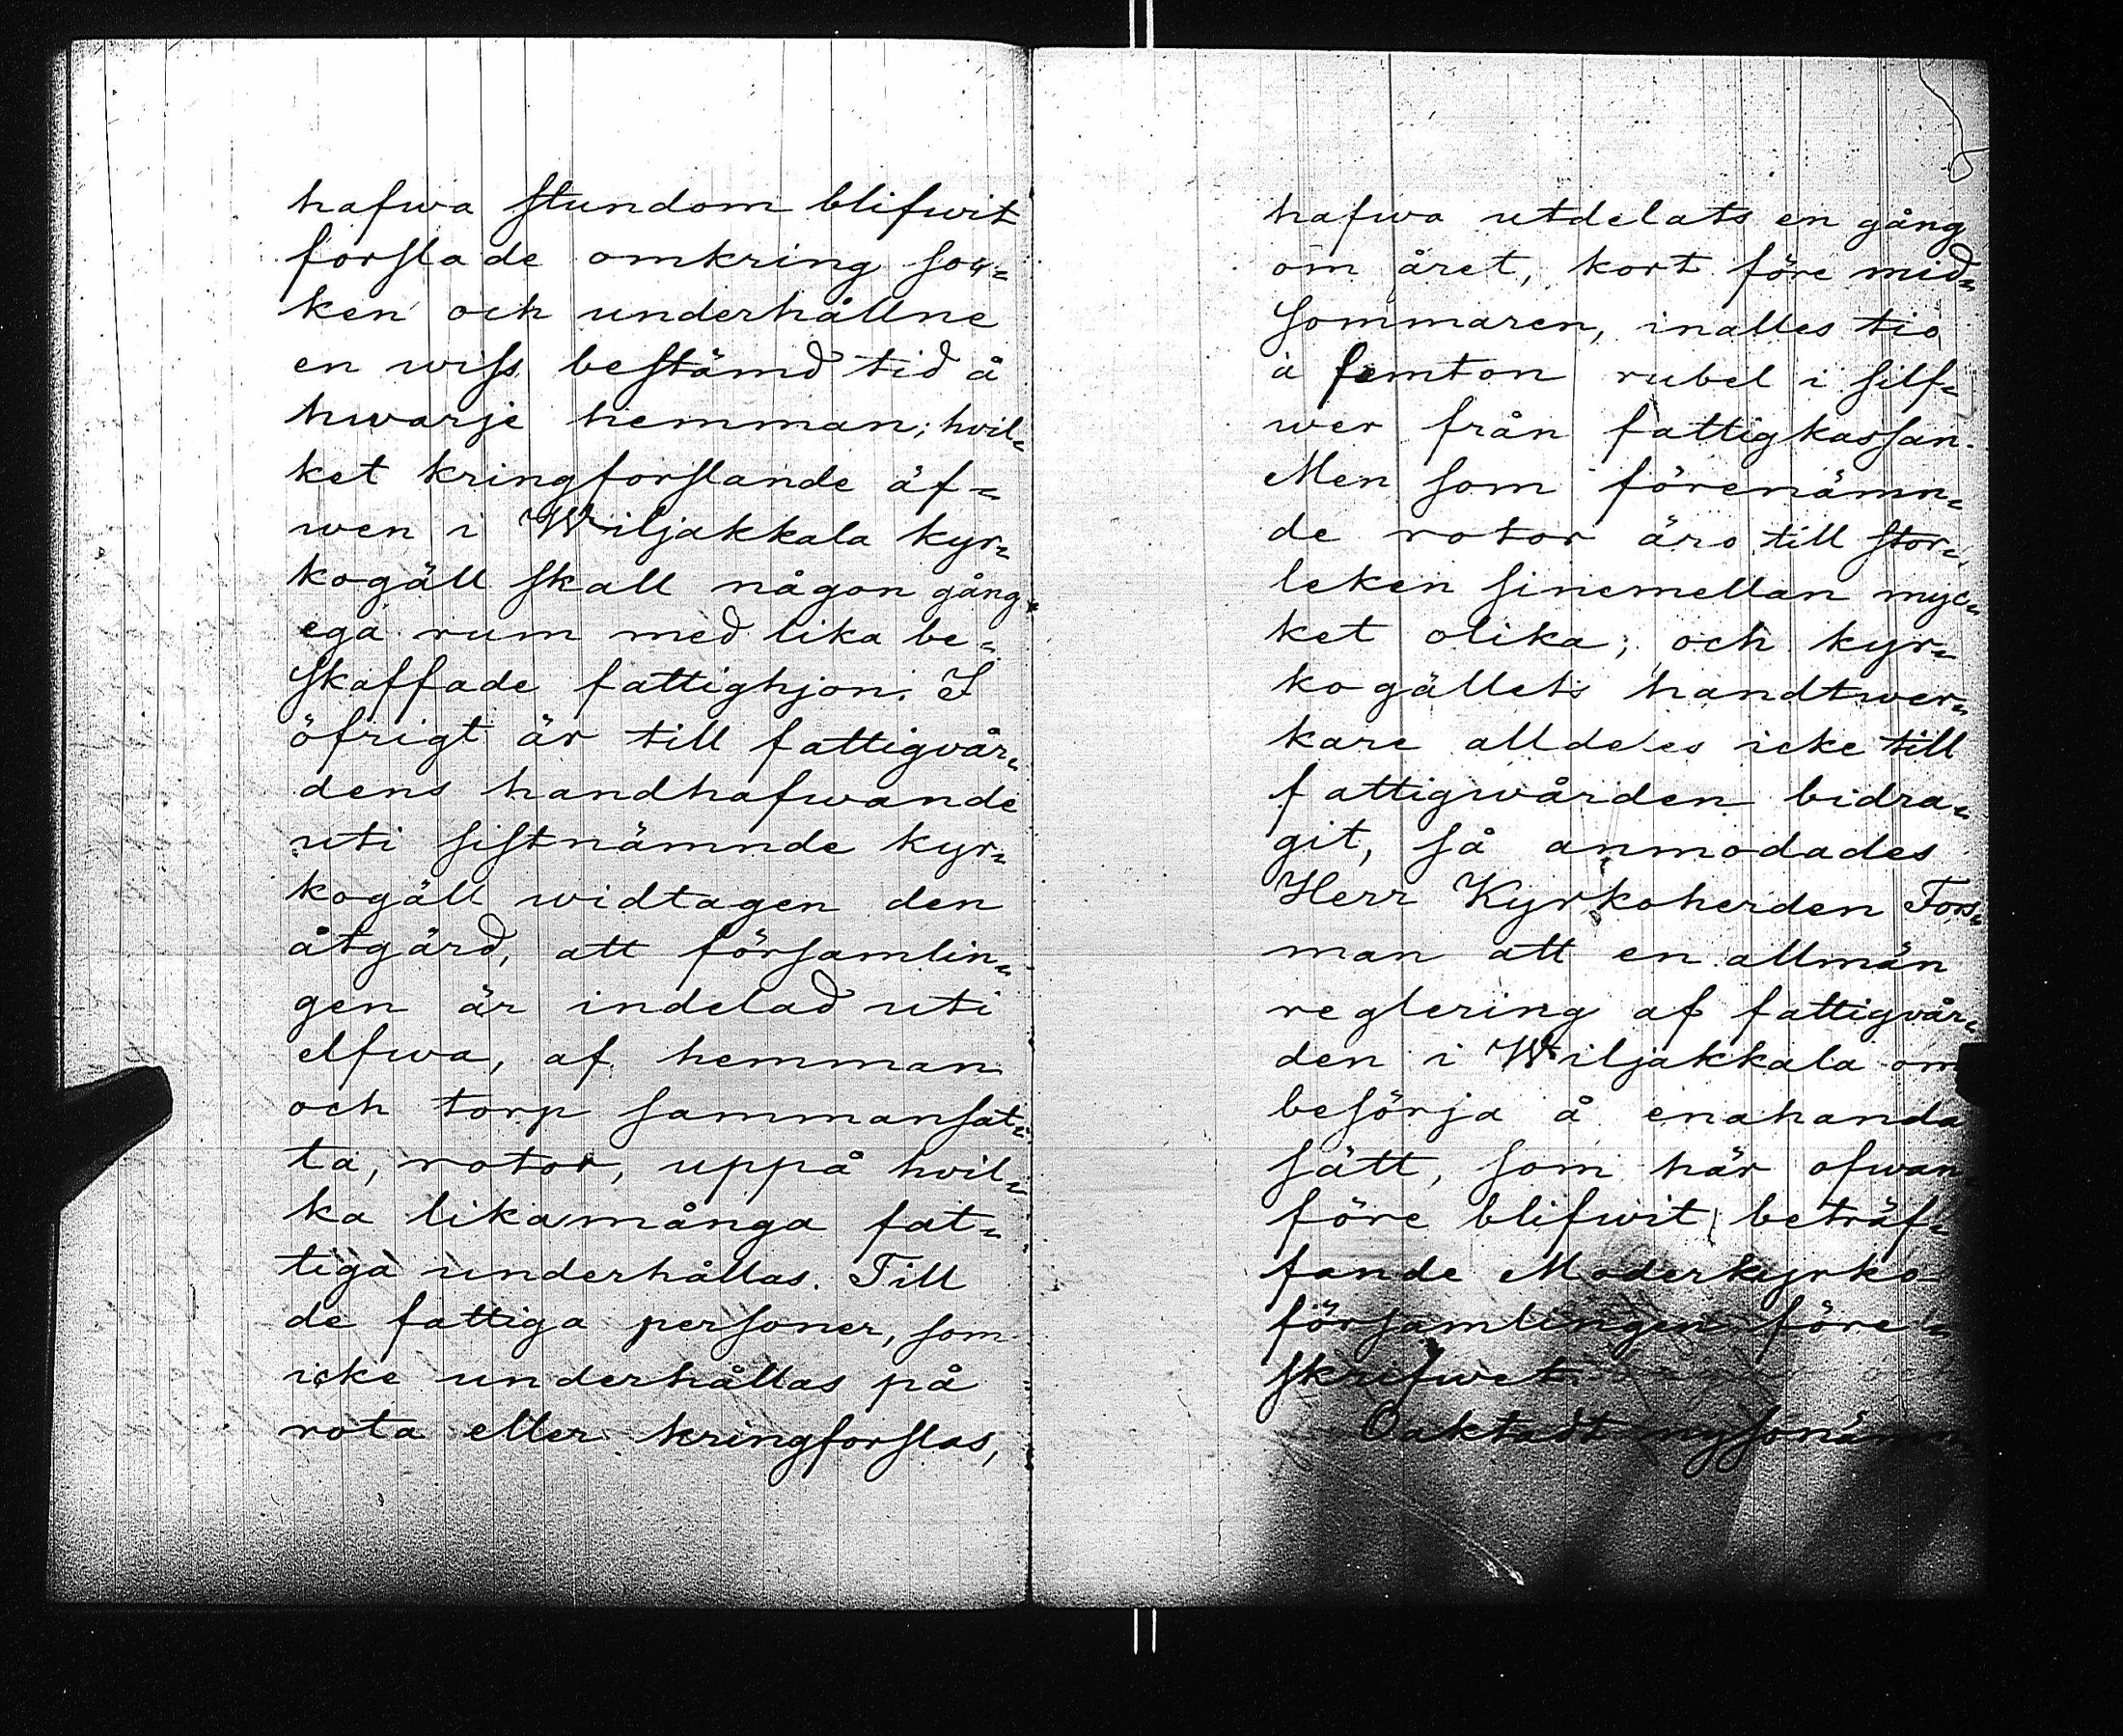 hafwa stundom blifwit
forslade omkring soc=
ken och underhållne
en wiss bestämd tid å
hwarje hemman; hvil=
ket kringforslande äf=
wen i Wiljakkala kyr=
kogäll skall någon gång
ega rum med lika be=
skaffade fattighjon. I
öfrigt är till fattigvår=
dens handhafwande
uti sistnämnde kyr=
kogäll widtagen den
åtgärd, att försmlin=
gen är indelad uti
elfwa, af hemman
och torp sammansat=
ta, rotor, uppå hvil=
ka likamånga fat=
tiga underhållas. Till
de fattiga personer, som
icke underhållas på
rota eller kringforslas,
hafwa utdelats en gång
om året, kort före mid=
sommaren, inalles tio
à femton rubel i silf=
wer från fattigkassan.
Men som förenämn=
de rotor äro till stor=
leken sinemellan myc=
ket olika; och kyr=
kogällets handtwer=
kare alldeles icke till
fattigwården bidra=
git, så anmodades
Herr Kyrkoherden Fors=
man att en allmän
reglering af fattigvår=
den i Wiljakkala om
besörja å enahanda
sätt, som här ofwan
före blifwit beträf=
fande Moderkyrko
församlingen före=
skrifwet.
Oaktadt